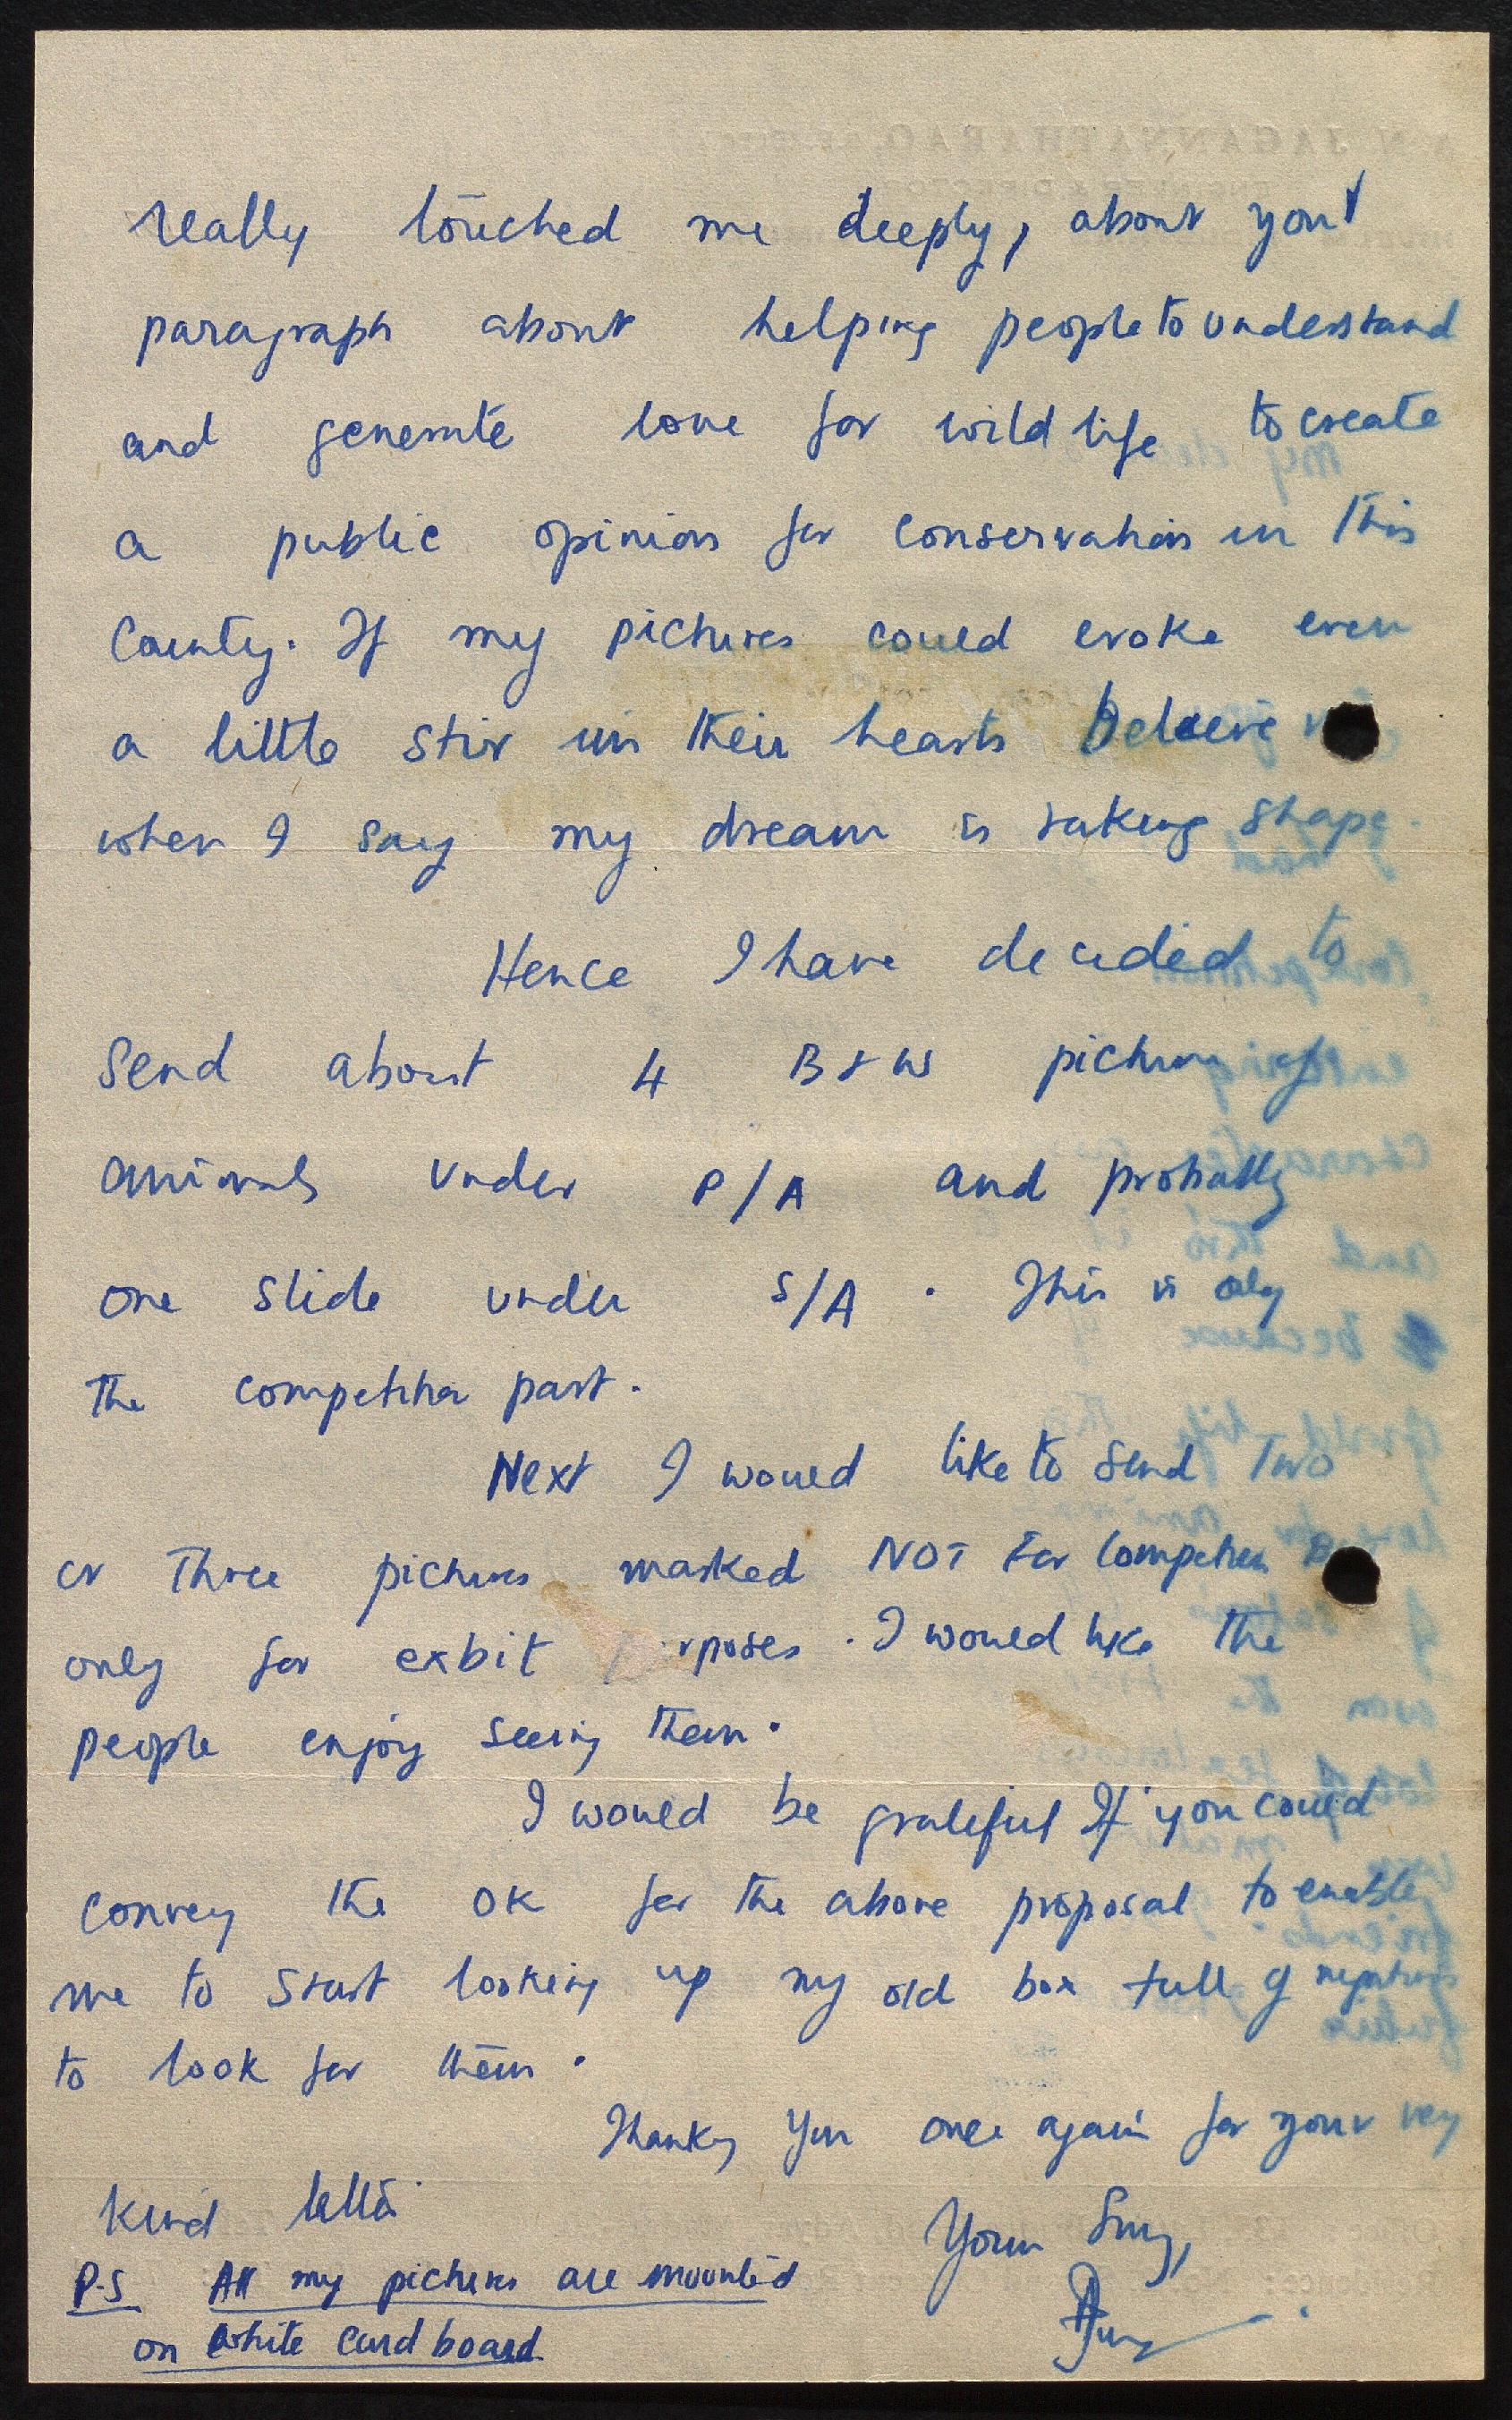 really touched me deeply, about your
paragraph about helping people to understand
and generate love for wild life to create
a public opinion for conservation in this
County. If my pictures could evoke even
a little stir in their hearts beleeve
when I say my dream is taking shape.
Hence I have decided to
Send about 4 B & W pictures of
animals under P/A and probably
one slide under S/A. This is only
the competition part.
Next I would like to send Two
or Three pictures marked NOT For Competition
only for exbit purposes. I would like the
people enjoy seeing them.
I would be grateful If you could
convey the OK for the above proposal to enable
me to start looking up my old box full of negatives
to look for them.
Thanking You once again for your very
kind letter
Yours Sincy,
P.S All my pictures are mounted
on white card board